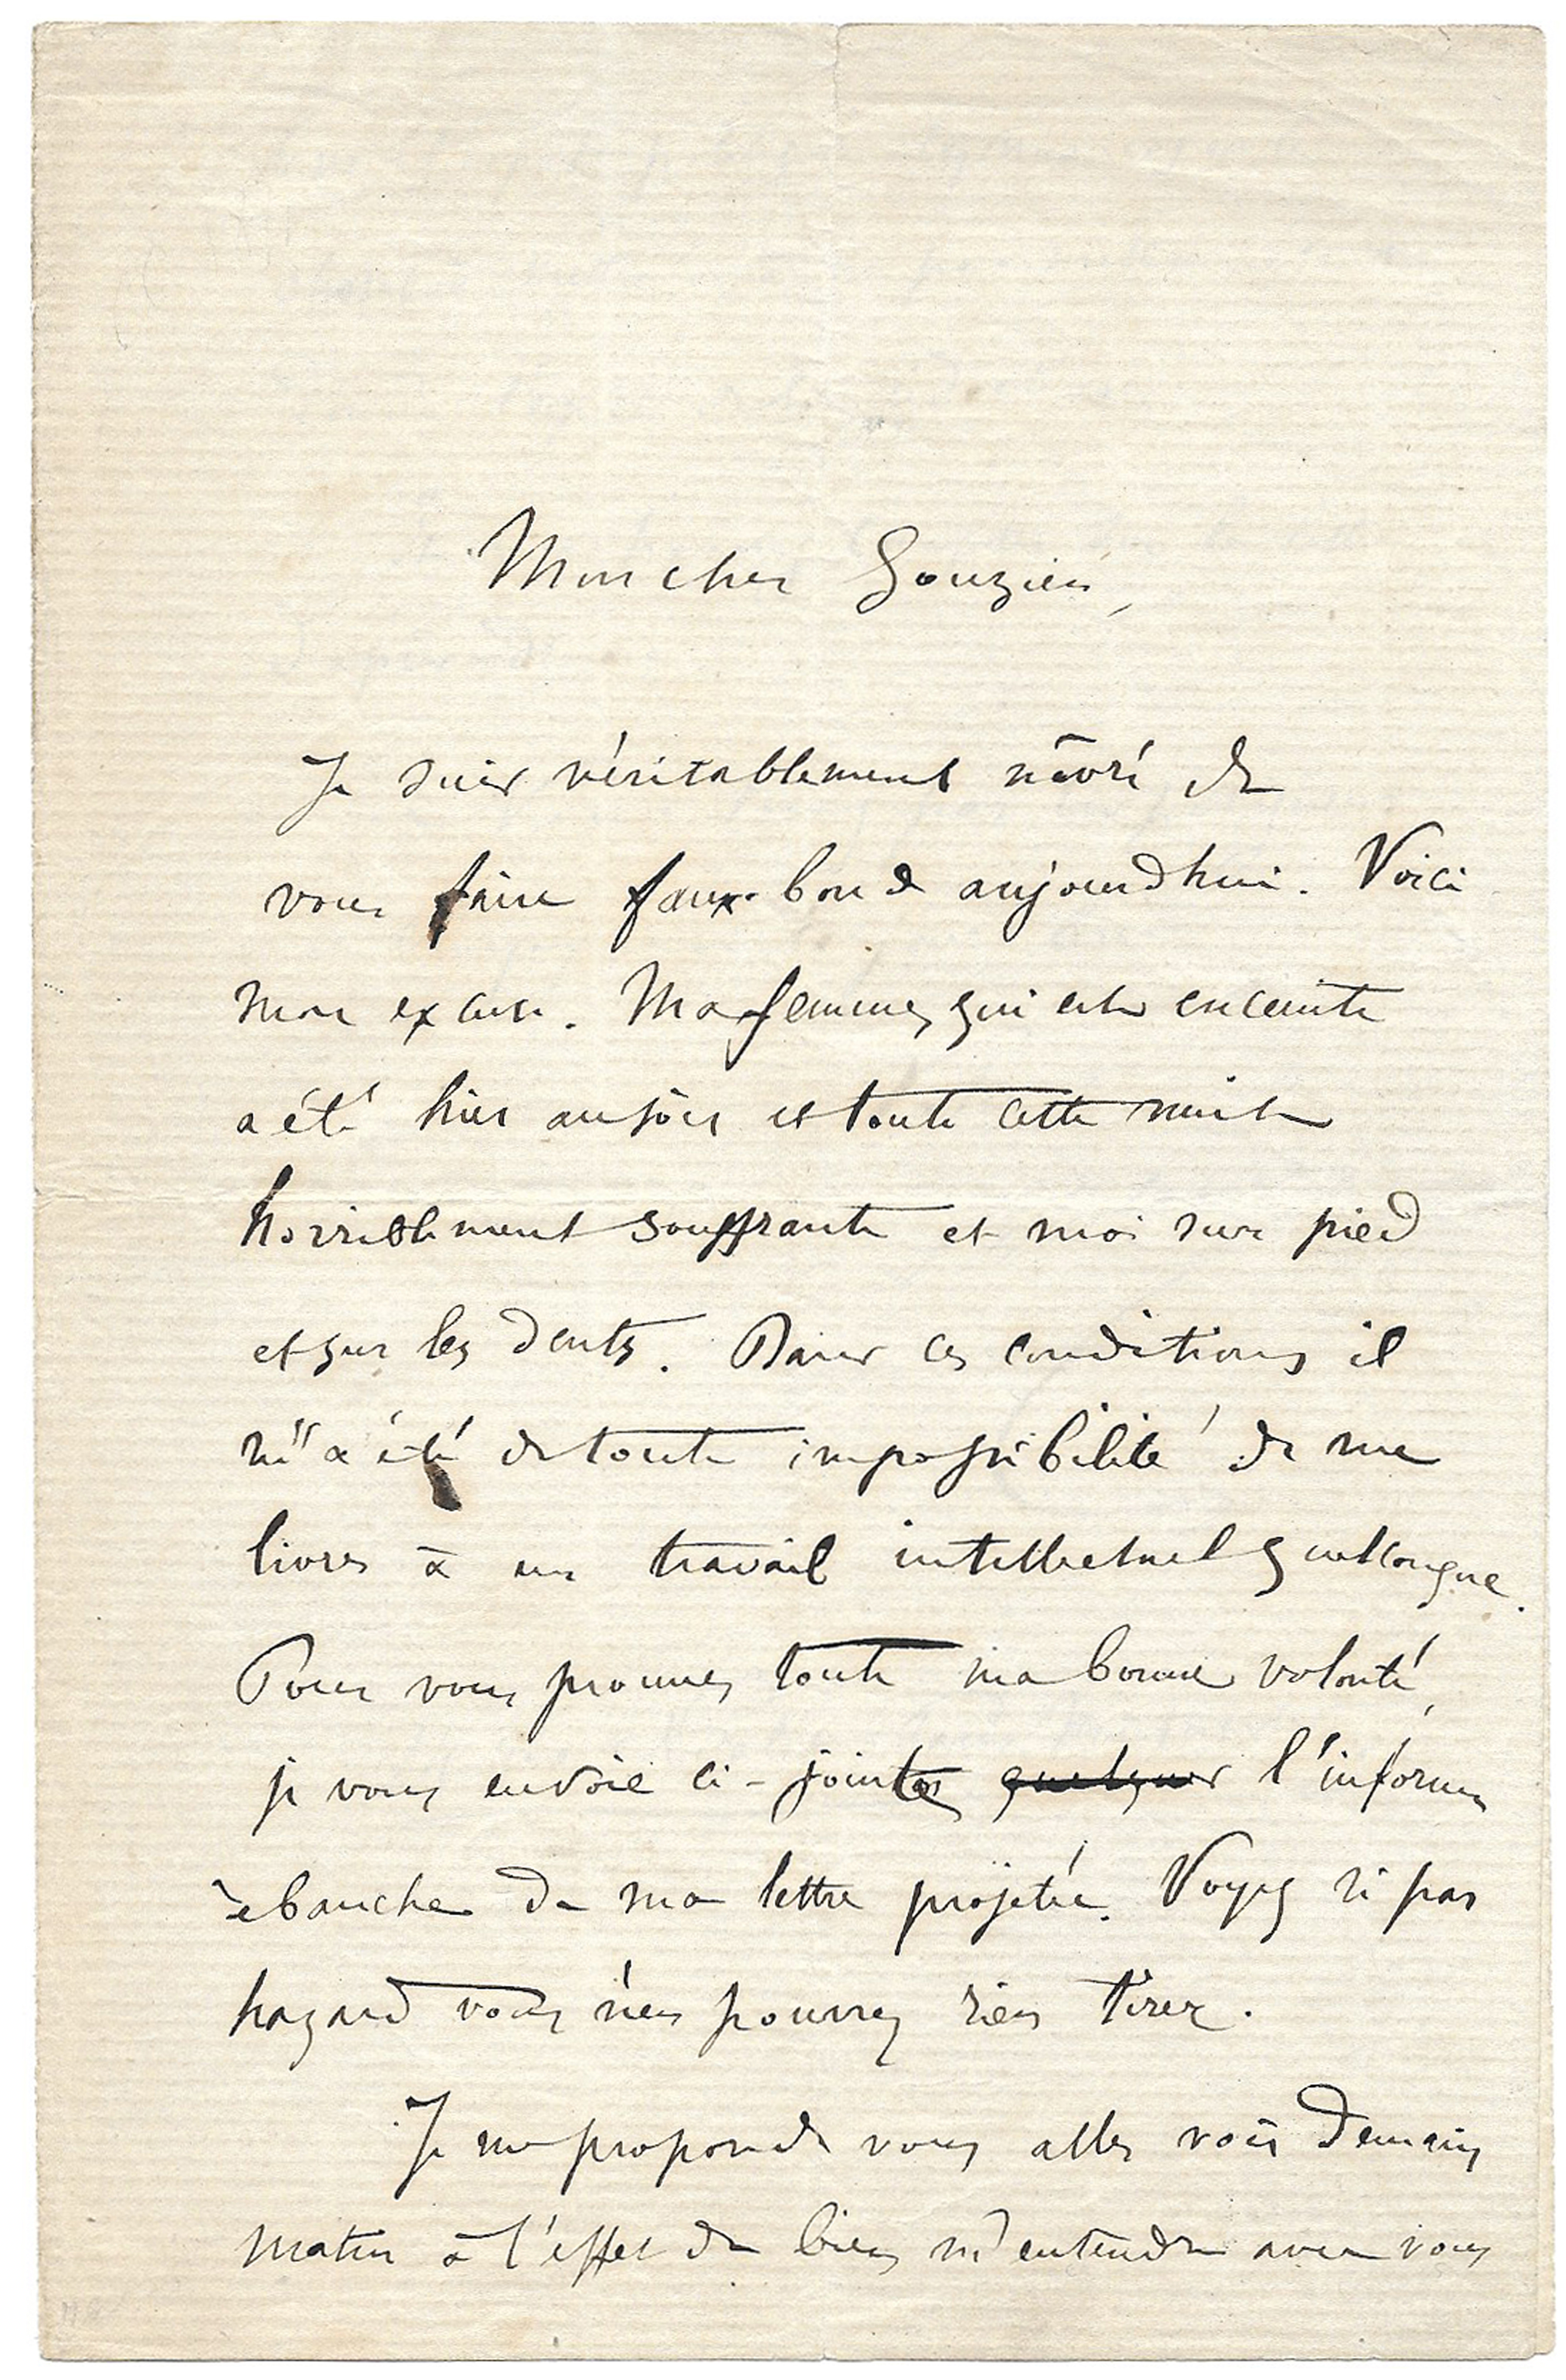 Mon cher Gouzien,
Je suis véritablement nâvré de
vous faire faux-bond aujourd'hui. Voici
mon excuse. Ma femme, qui est enceinte
a été hier au soir et toute cette nuit
horriblement souffrante et moi sur pied
et sur les dents. Dans ces conditions il
m'a été de toute impossibilité de me
livrer à un travail intellectuel quelconque.
Pour vous prouver toute ma bonne volonté,
je vous envoie ci-jointes quelques l'informe
ébauche de ma lettre projetée. Voyez si par
hazard vous n'en pourrez rien tirer.
Je me propose de vous aller voir demain
matin à l'effet de bien m'entendre avec vous